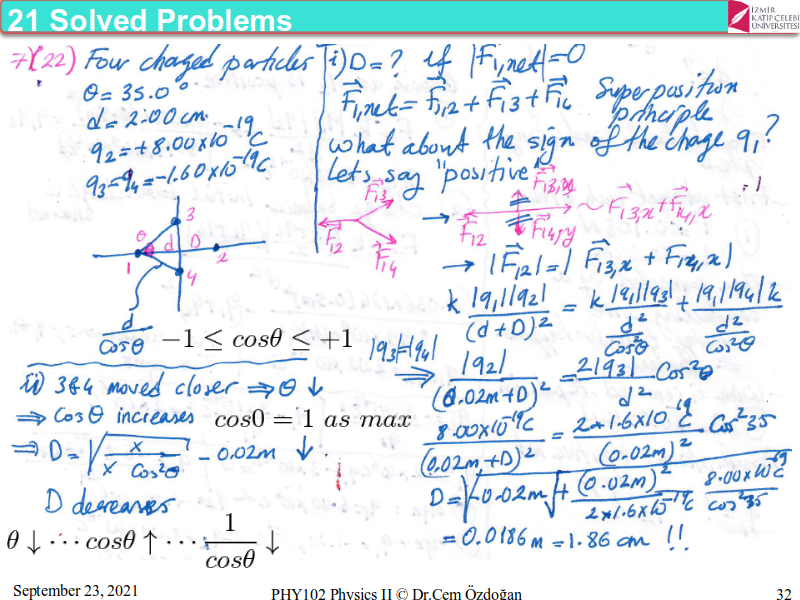 21 Solved Problems
İZMİR
KATİP ÇELEBİ
ÜNİVERSİTESİ
7)(22) Four charged particles
θ = 35.0°
d = 2.00 cm
q2 = +8.00x10^-19 C
q3 = q4 = -1.60x10^-19 C
3
θ d D
1 2
4
d/cosθ
−1 ≤ cosθ ≤ +1
i) D = ? if |F1,net| = 0
F1,net = F12 + F13 + F14 Superposition
principle
what about the sign of the chage q1?
Lets say "positive"
F13
F12
F14
→ F13,y
F12 F14,y ~ F13,x + F14,x
→ |F12| = | F13,x + F14,x |
k |q1||q2| / (d+D)^2 = k |q1||q3| / (d^2/cos^2θ) + |q1||q4| k / (d^2/cos^2θ)
|q3|=|q4| ⇒ |q2| / (0.02m+D)^2 = 2|q3| / d^2 Cos^2θ
8.00x10^-19 C / (0.02m+D)^2 = 2*1.6x10^-19 / (0.02m)^2 Cos^2 35
D = -0.02m + √((0.02m)^2 / 2*1.6x10^-19 C · 8.00x10^-19 C / cos^2 35)
= 0.0186 m = 1.86 cm !!
ii) 3&4 moved closer ⇒ θ ↓
⇒ Cosθ increases cos0 = 1 as max
⇒ D = √(x / x Cos^2θ) - 0.02m ↓
D decreases
θ ↓ ··· cosθ ↑ ···· 1/cosθ ↓
September 23, 2021
PHY102 Physics II © Dr.Cem Özdoğan
32